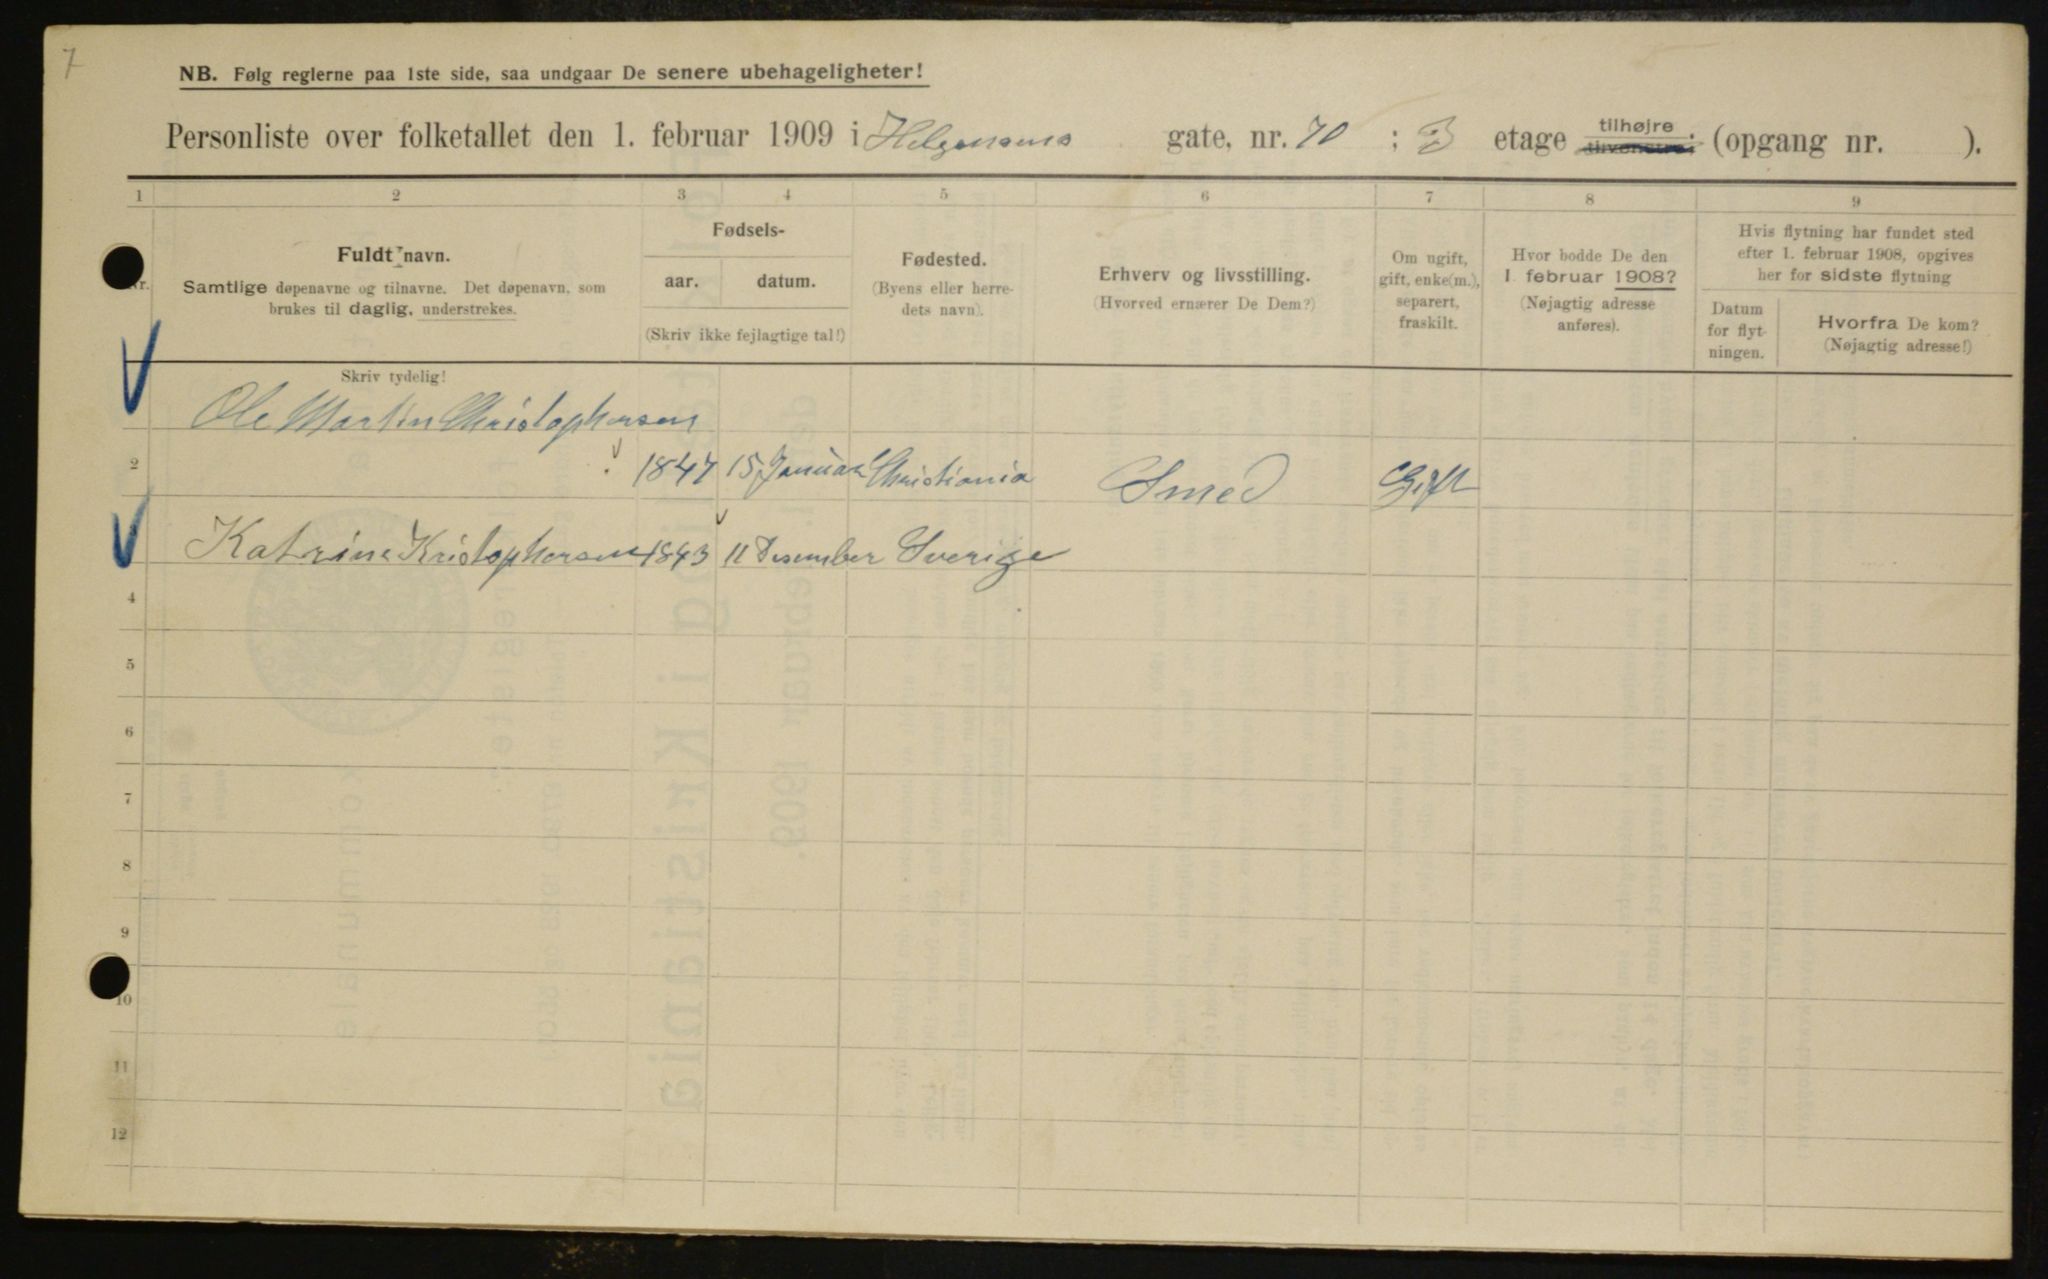 7
NB. Følg reglerne paa 1ste side, saa undgaar De senere ubehageligheter!
Personliste over folketallet den 1. februar 1909 i Helgesens gate, nr. 70 ; 3 etage tilhøjre tilvenstre; (opgang nr. ).
1 2 3 4 5 6 7 8 9
Nr.
Fuldt navn.
Samtlige døpenavne og tilnavne. Det døpenavn, som
brukes til daglig, understrekes.
Fødsels-
aar. datum.
(Skriv ikke fejlagtige tal!)
Fødested.
(Byens eller herre-
dets navn).
Erhverv og livsstilling.
(Hvorved ernærer De Dem?)
Om ugift,
gift, enke(m.),
separert,
fraskilt.
Hvor bodde De den
1. februar 1908?
(Nøjagtig adresse
anføres).
Hvis flytning har fundet sted
efter 1. februar 1908, opgives
her for sidste flytning
Datum
for flyt-
ningen.
Hvorfra De kom?
(Nøjagtig adresse!)
Skriv tydelig!
Ole Martin Christophersen
2 1847 15 Januar Christiania Smed Gift
Katrine Kristophersen 1843 11 Desember Sverige
4
5
6
7
8
9
10
11
12